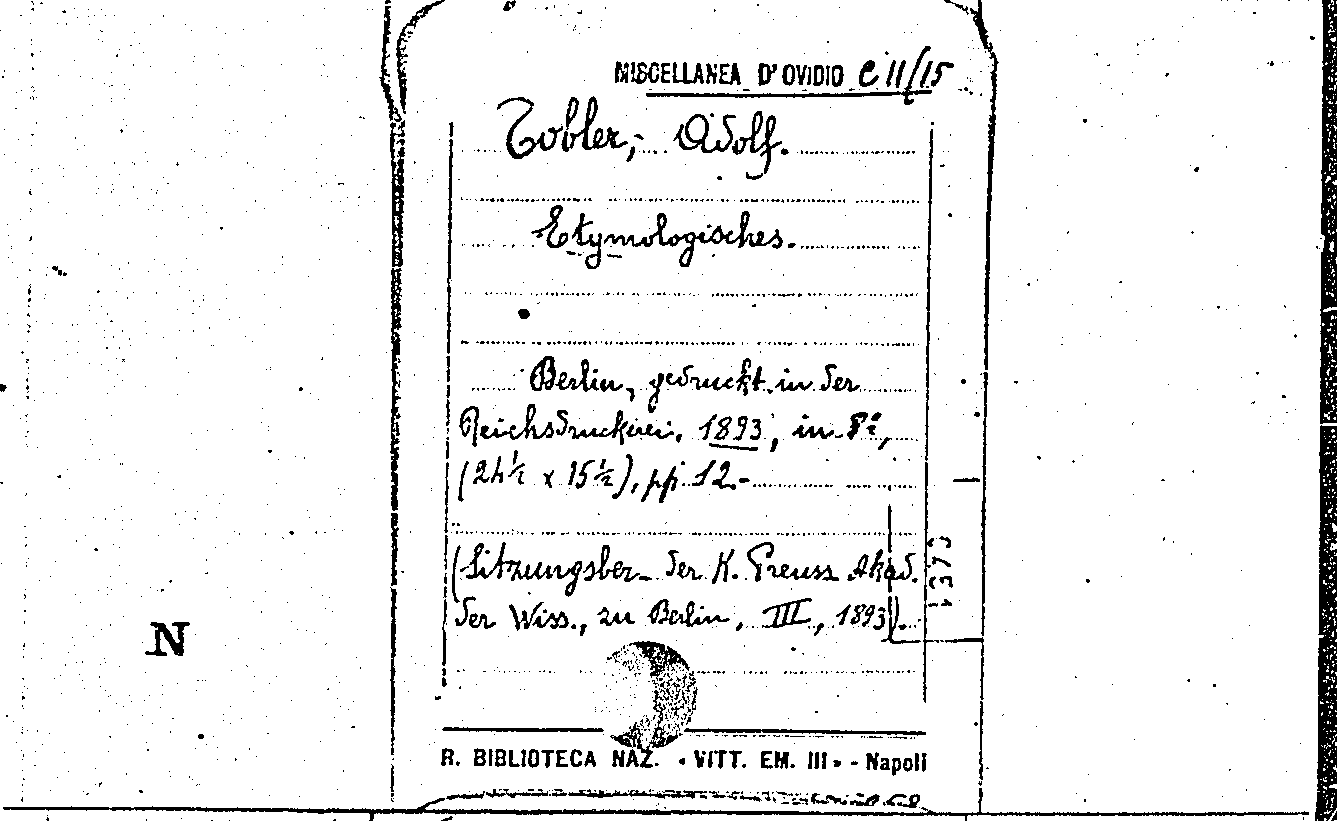 MISCELLANEA D'OVIDIO C 11/15
Tobler, Adolf.
Etymologisches.
Berlin, gedruckt in der
Reichsdruckerei, 1893, in 8º,
(24½ x 15½), pp. 12.-
(Sitzungsber. der K. Preuss. Akad.
der Wiss., zu Berlin, III, 1893).
N
R. BIBLIOTECA NAZ. « VITT. EM. III » - Napoli